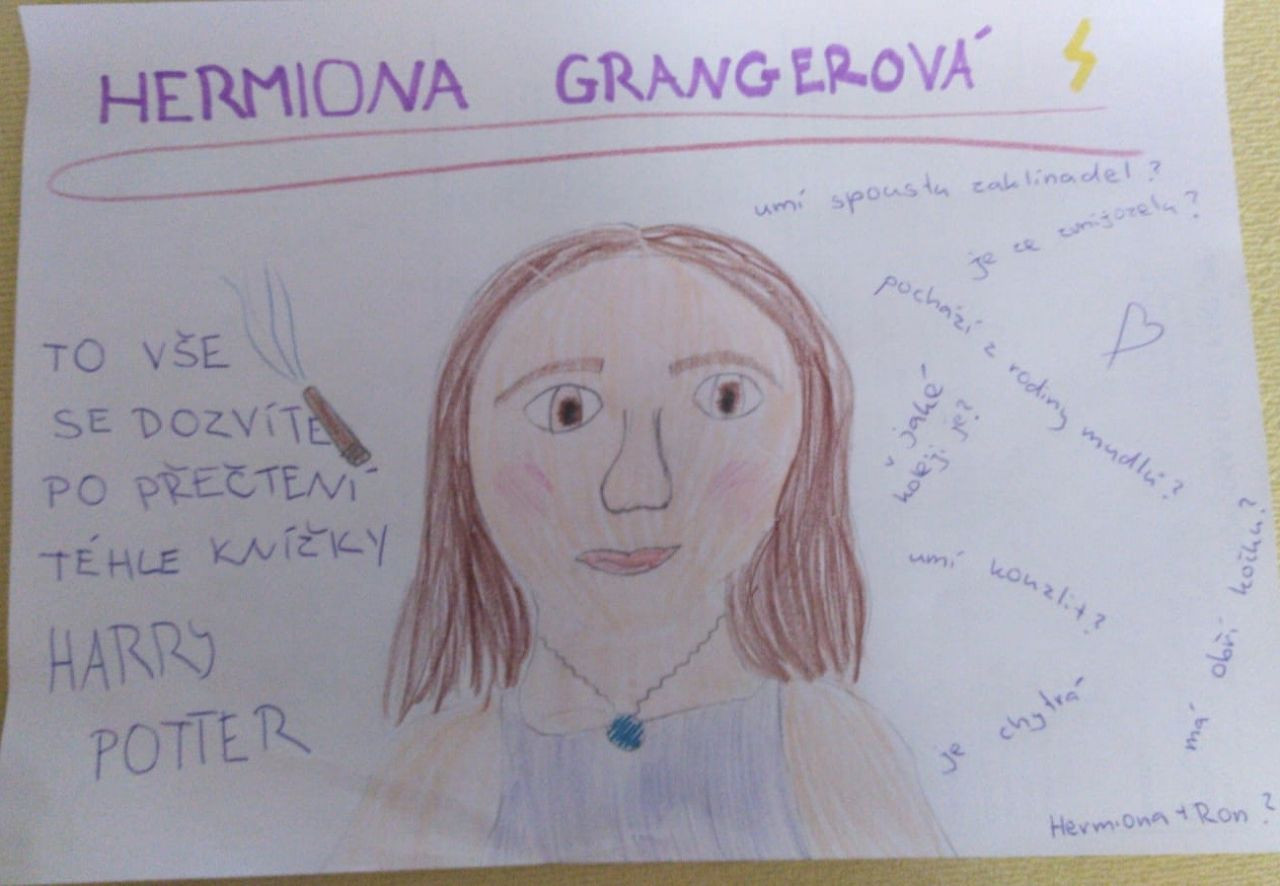 HERMIONA GRANGEROVÁ
umí spoustu zaklínadel?
je ze zvmijozelu?
pochází z rodiny mudlů?
v jaké
koleji je?
TO VŠE
SE DOZVÍTE
PO PŘEČTENÍ
TÉHLE KNÍŽKY
HARRY
POTTER
umí kouzlit?
má obří kočku?
je chytrá
Hermiona + Ron?